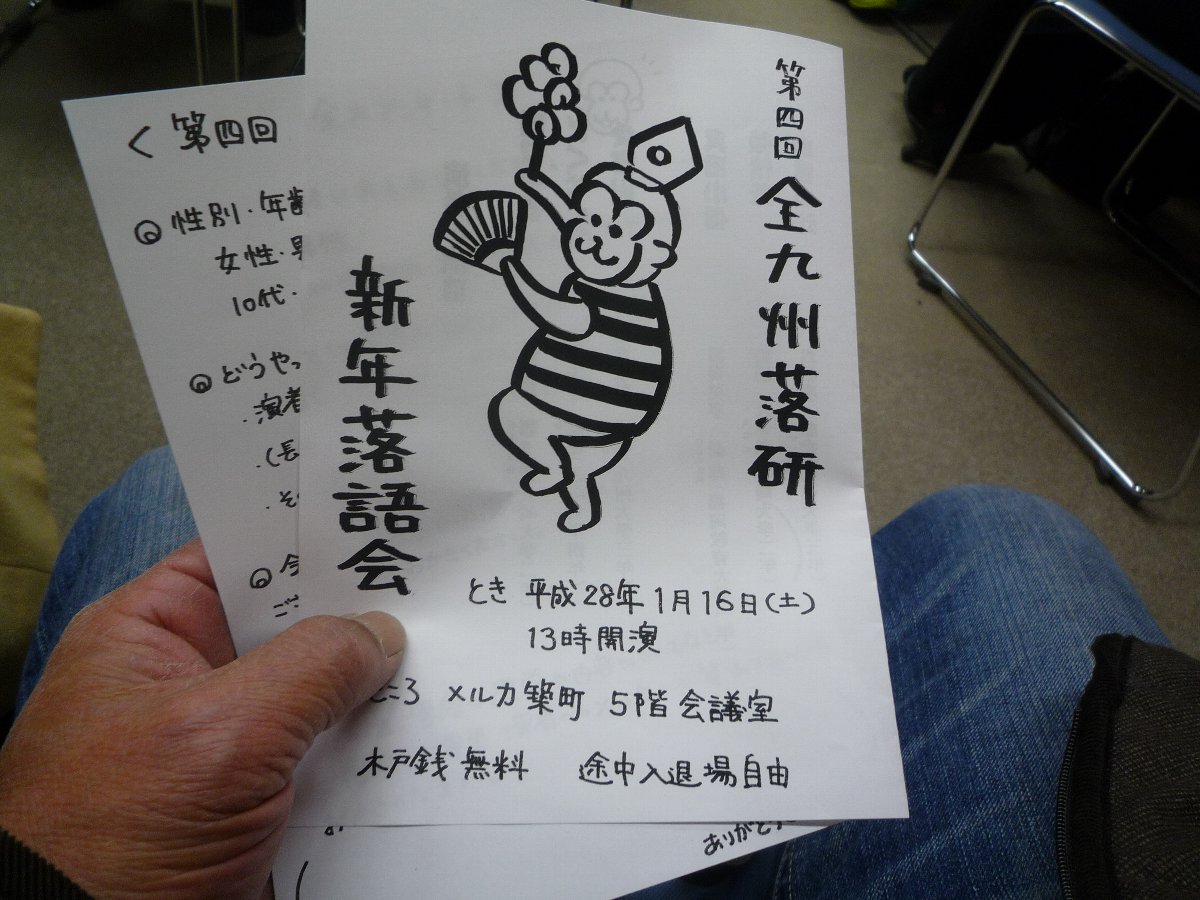 第四回 全九州落研
新年落語会
とき 平成28年1月16日(土)
13時開演
ところ メルカ築町 5階会議室
木戸銭無料 途中入退場自由
く 第四回
性別・年齢
女性・男
10代・
どうやっ
・演者
・(長
・そ
今
ご
ありがとう